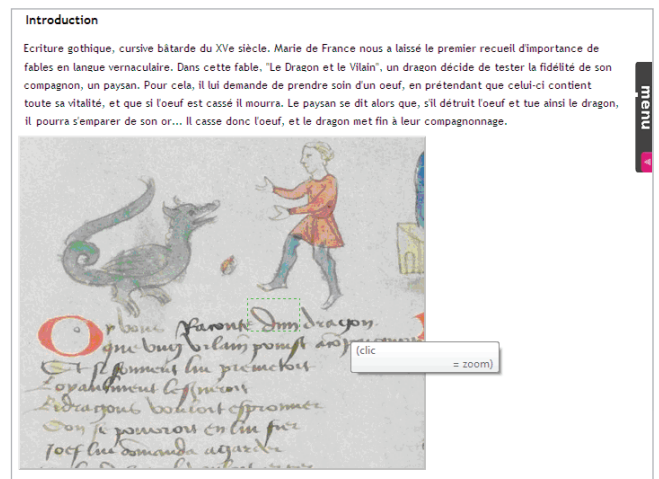 Introduction
Ecriture gothique, cursive bâtarde du XVe siècle. Marie de France nous a laissé le premier recueil d'importance de
fables en langue vernaculaire. Dans cette fable, "Le Dragon et le Vilain", un dragon décide de tester la fidélité de son
compagnon, un paysan. Pour cela, il lui demande de prendre soin d'un oeuf, en prétendant que celui-ci contient
toute sa vitalité, et que si l'oeuf est cassé il mourra. Le paysan se dit alors que, s'il détruit l'oeuf et tue ainsi le dragon,
il pourra s'emparer de son or... Il casse donc l'oeuf, et le dragon met fin à leur compagnonnage.
menu
Oy vous Raconte dun dragon
que vug vilain
(clic
= zoom)
Et se
Loyaulment
dragons vouloit
Son se en lui fier